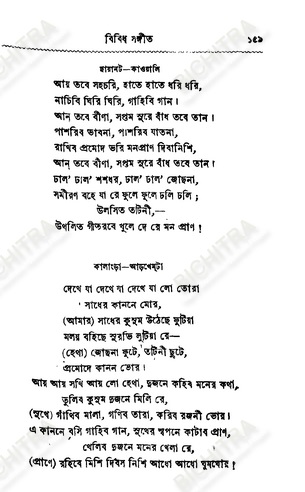 বিবিধ সঙ্গীত ১৫৯
ছায়ানট—কাওয়ালি
আয় তবে সহচরি, হাতে হাতে ধরি ধরি,
নাচিবি ঘিরি ঘিরি, গাহিবি গান।
আন্ তবে বীণা, সপ্তম সুরে বাঁধ তবে তান।
পাশরিব ভাবনা, পাশরিব যাতনা,
রাখিব প্রমোদ ভরি মনপ্রাণ দিবানিশি,
আন্ তবে বীণা, সপ্তম সুরে বাঁধ তবে তান।
ঢাল' ঢাল' শশধর, ঢাল' ঢাল' জোছনা,
সমীরণ বহে যা রে ফুলে ফুলে ঢলি ঢলি;
উলসিত তটিনী,—
উথলিত গীতরবে খুলে দে রে মন প্রাণ!
কালাংড়া—আড়খেম্‌টা
দেখে যা দেখে যা দেখে যা লো তোরা
সাধের কাননে মোর,
(আমার) সাধের কুসুম উঠেছে ফুটিয়া
মলয় বহিছে সুরভি লুটিয়া রে—
(হেথা) জোছনা ফুটে, তটিনী ছুটে,
প্রমোদে কানন ভোর।
আয় আয় সখি আয় লো হেথা, দুজনে কহিব মনের কথা,
তুলিব কুসুম দুজনে মিলি রে,
(সুখে) গাঁথিব মালা, গণিব তারা, করিব রজনী ভোর।
এ কাননে বসি গাহিব গান, সুখের স্বপনে কাটাব প্রাণ,
খেলিব দুজনে মনের খেলা রে,
(প্রাণে) রহিবে মিশি দিবস নিশি আধো আধো ঘুমঘোর!
BICHITRA